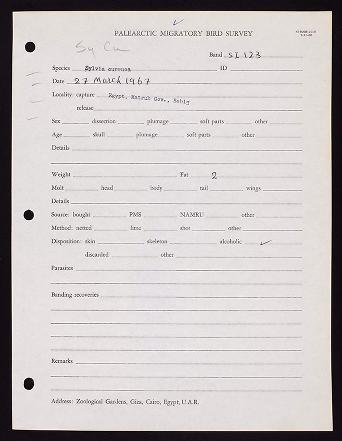 PALEARCTIC MIGRATORY BIRD SURVEY
Sy Cu
Band SI 123
Species Sylvia curruca ID
Date 27 March 1967
Locality: capture Egypt, Matruh Gov., Bahig
release
Sex dissection plumage soft parts other
Age skull plumage soft parts other
Details
Weight Fat 2
Molt head body tail wings
Details
Source: bought PMS NAMRU other
Method: netted lime shot other
Disposition: skin skeleton alcoholic ✓
discarded other
Parasites
Banding recoveries
Remarks
Address: Zoological Gardens, Giza, Cairo, Egypt, U.A.R.